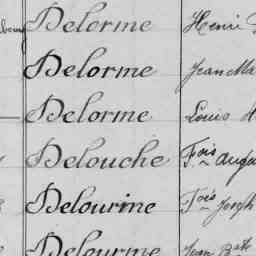 Delorme Henri
Delorme Jean Ma
Delorme Louis
Delouche Fois Augu
Delourine Fois Joseph
Delourme Jean Bate